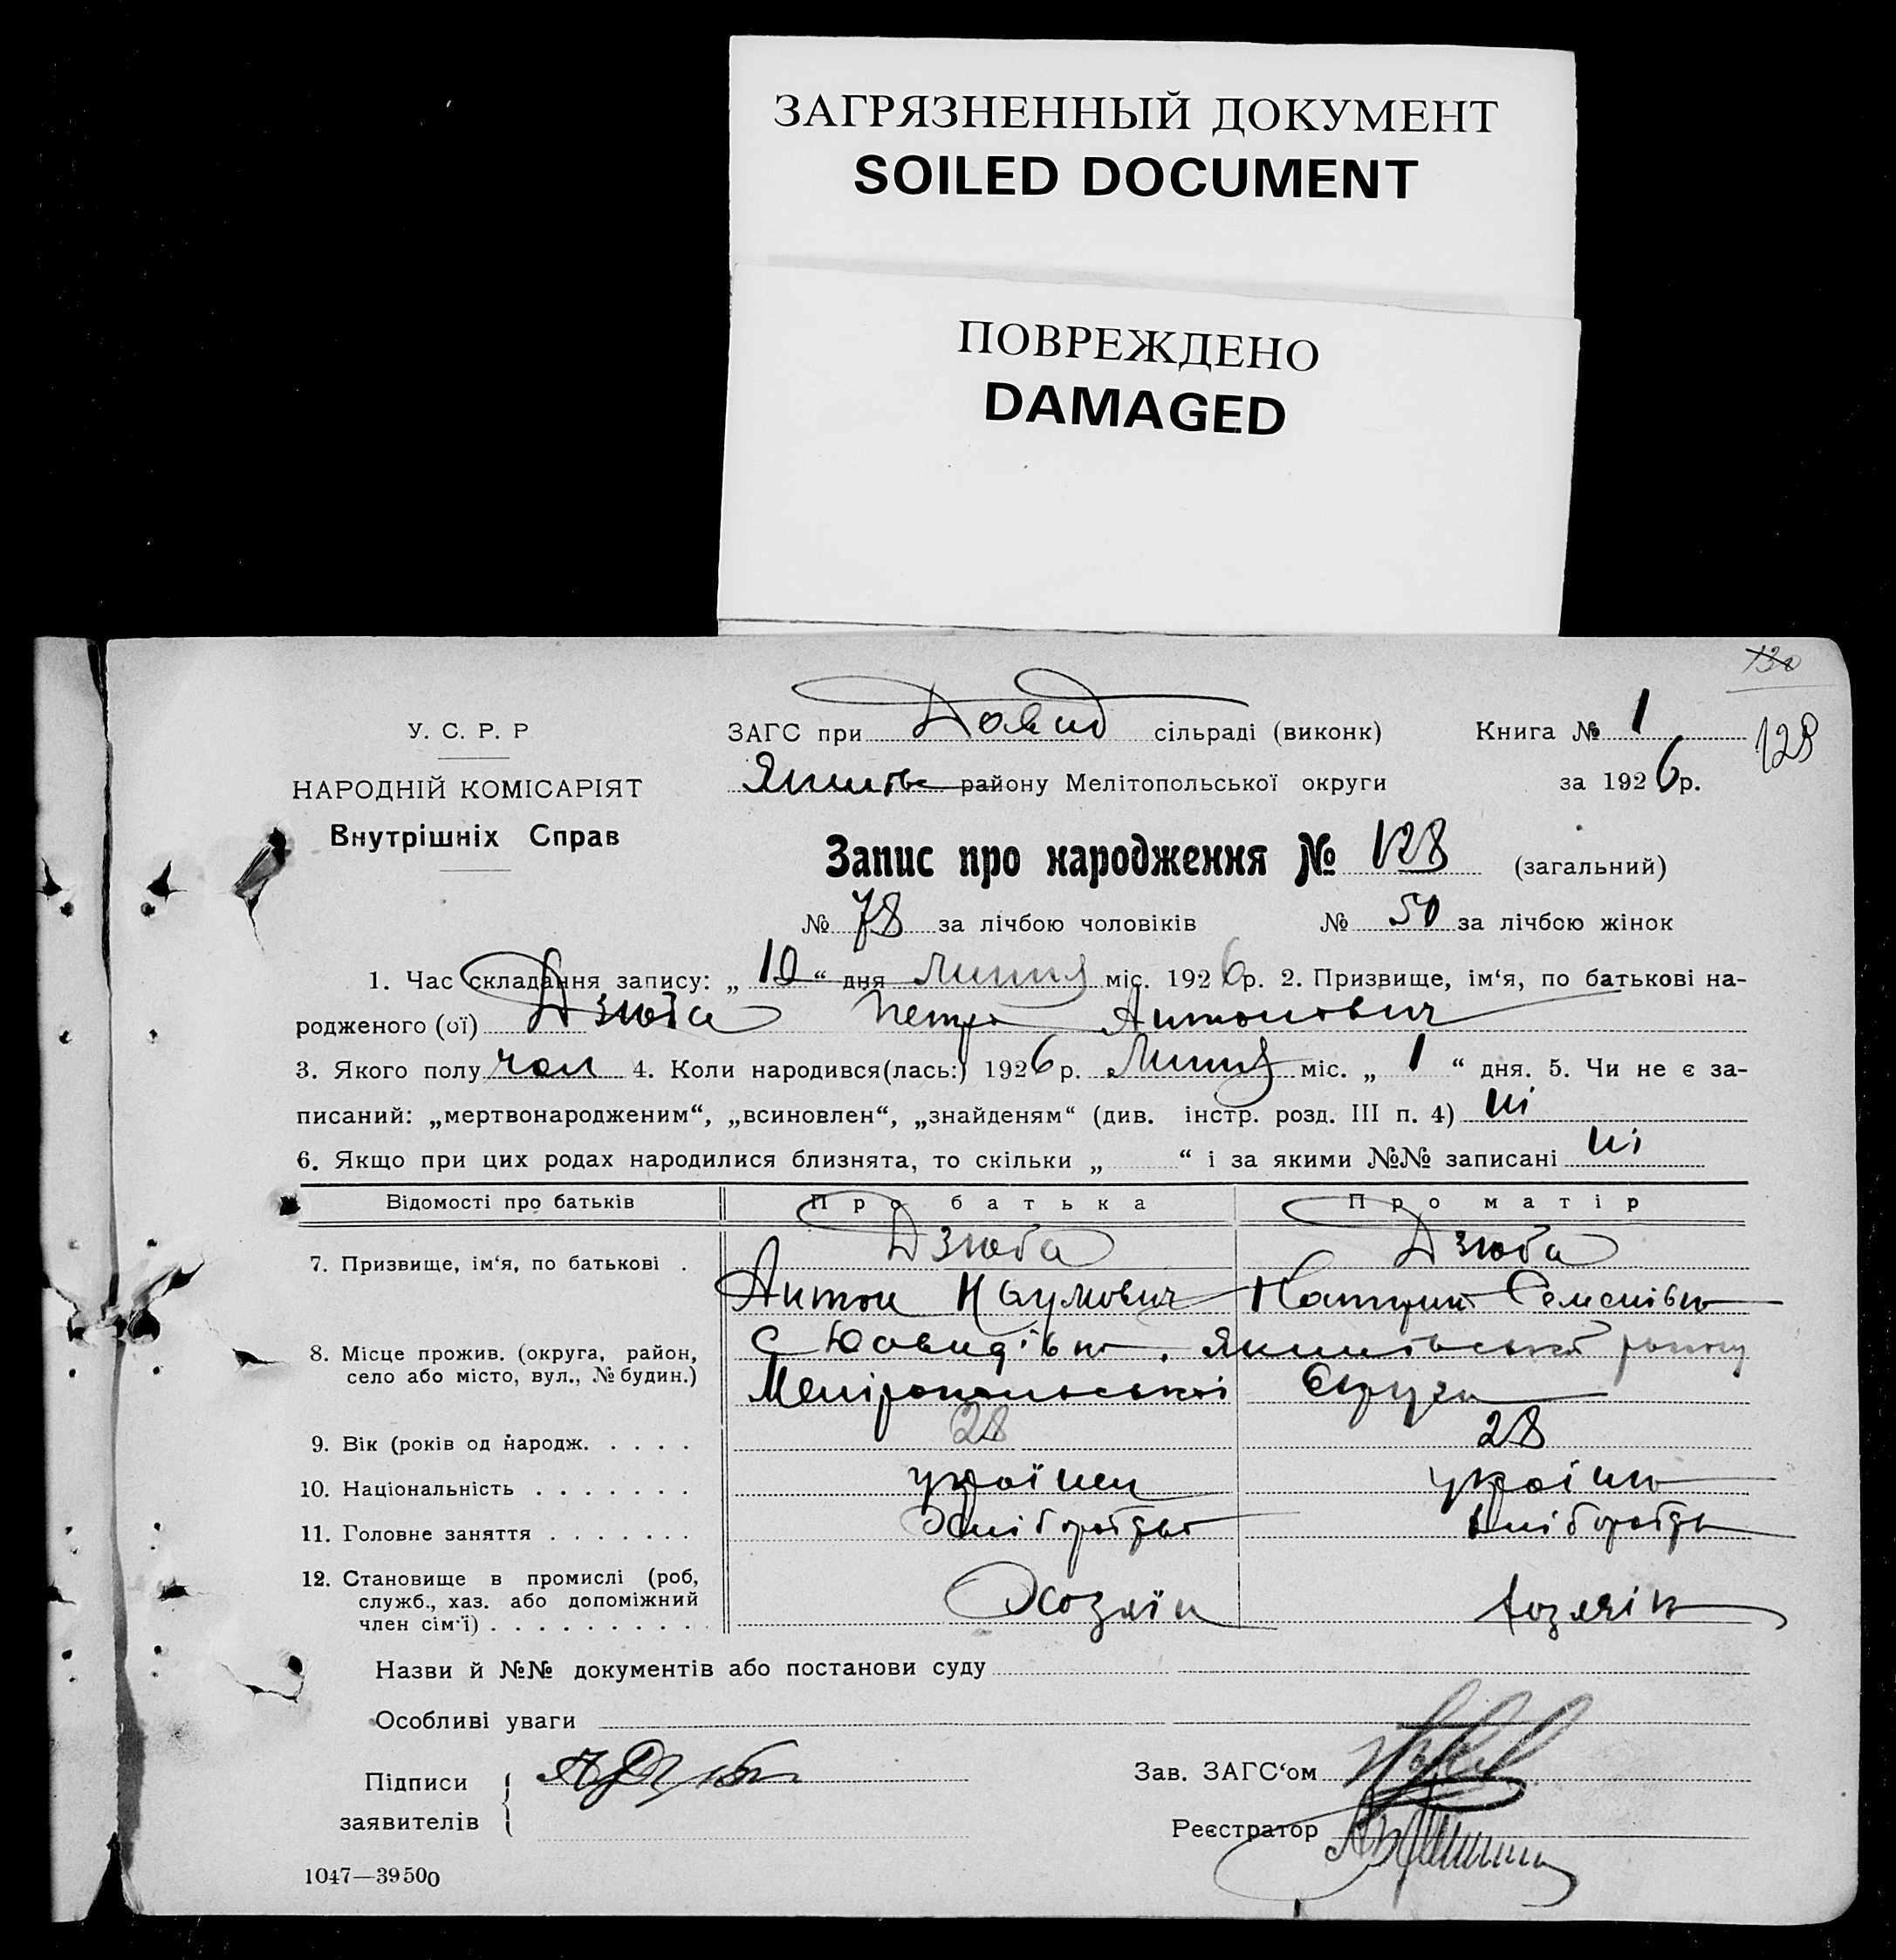 ЗАГРЯЗНЕННЫЙ ДОКУМЕНТ
SOILED DOCUMENT
ПОВРЕЖДЕНО
DAMAGED
130
128
У. С. Р. Р
НАРОДНІЙ КОМІСАРІЯТ
Внутрішніх Справ
ЗАГС при Довид сільраді (виконк) Книга № 1
району Мелітопольської округи за 1926 р.
Запис про народження № 128 (загальний)
№ 78 за лічбою чоловіків № 50 за лічбою жінок
1. Час складання запису: „ 10 “ дня Липня міс. 1926 р. 2. Призвище, ім‘я, по батькові на-
родженого (ої) Дзюба Петро Антонович
3. Якого полу чол 4. Коли народився(лась:) 1926 р. Липня міс. „ 1 “ дня. 5. Чи не є за-
писаний: „мертвонародженим“, „всиновлен“, „знайденям“ (див. інстр. розд. III п. 4) ні
6. Якщо при цих родах народилися близнята, то скільки „ “ і за якими №№ записані ні
Відомості про батьків Про батька Про матір
7. Призвище, ім‘я, по батькові . Дзюба Дзюба
Антон Наумович Семенівна
8. Місце прожив. (округа, район, село або місто, вул., № будин.) с. району
Мелітопольської Округи
9. Вік (років од народж. . . . . 28 28
10. Національність . . . . . . . українец
11. Головне заняття . . . . . . .
12. Становище в промислі (роб, служб., хаз. або допоміжний член сім‘ї) . . . . . . . . . . Хозяїн
Назви й №№ документів або постанови суду
Особливі уваги
Підписи
заявителів
Зав. ЗАГС‘ом
Реєстратор
1047—39500